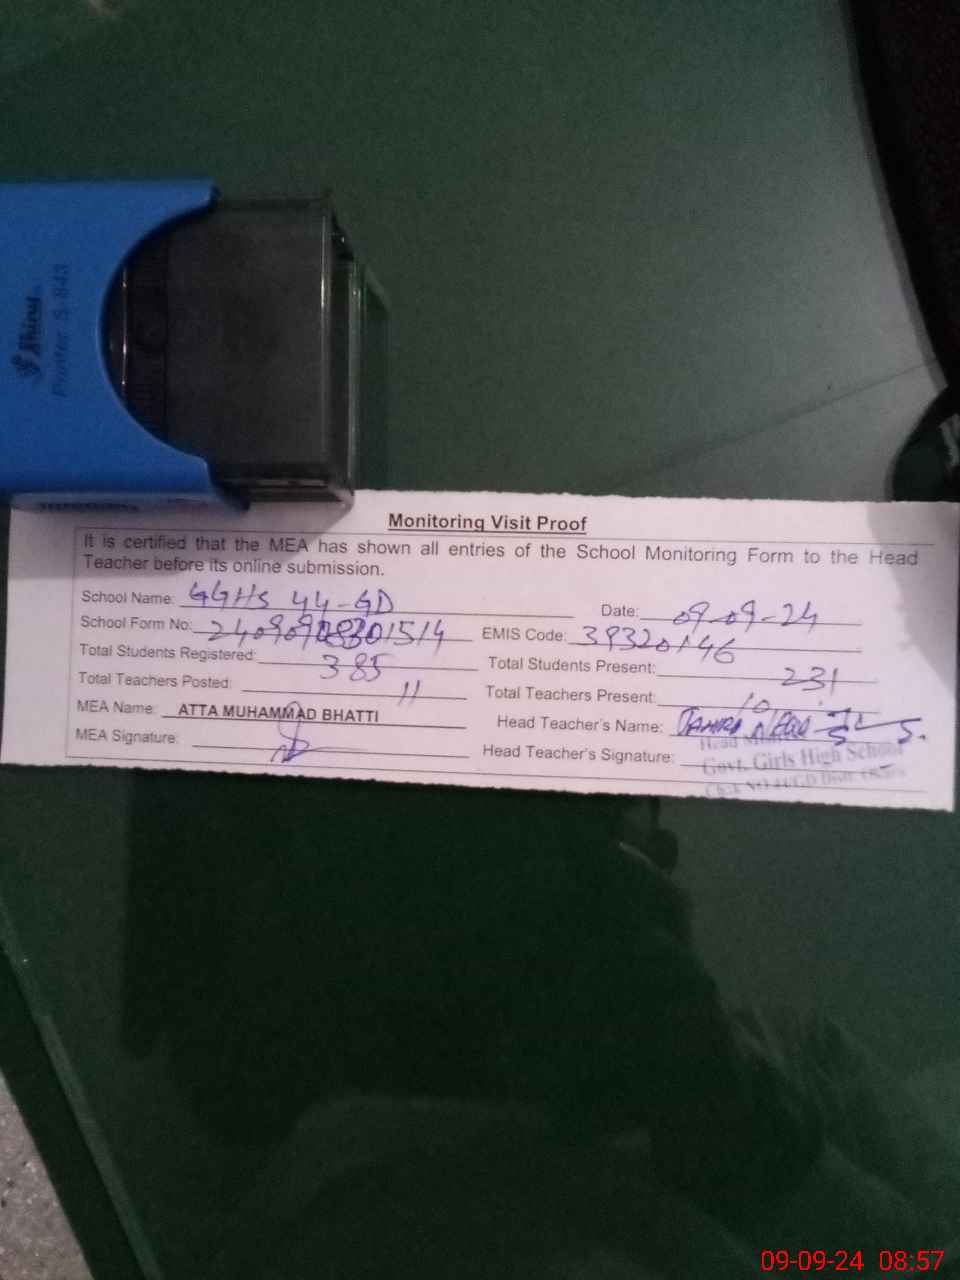 Shiny
Printer S-843
Monitoring Visit Proof
It is certified that the MEA has shown all entries of the School Monitoring Form to the Head
Teacher before its online submission.
School Name: GGHS 44-GD Date: 09-09-24
School Form No: EMIS Code: 39320146
Total Students Registered: 385 Total Students Present: 231
Total Teachers Posted: 11 Total Teachers Present: 10
MEA Name: ATTA MUHAMMAD BHATTI Head Teacher's Name:
MEA Signature: Head Teacher's Signature:
Govt. Girls High School
09-09-24 08:57